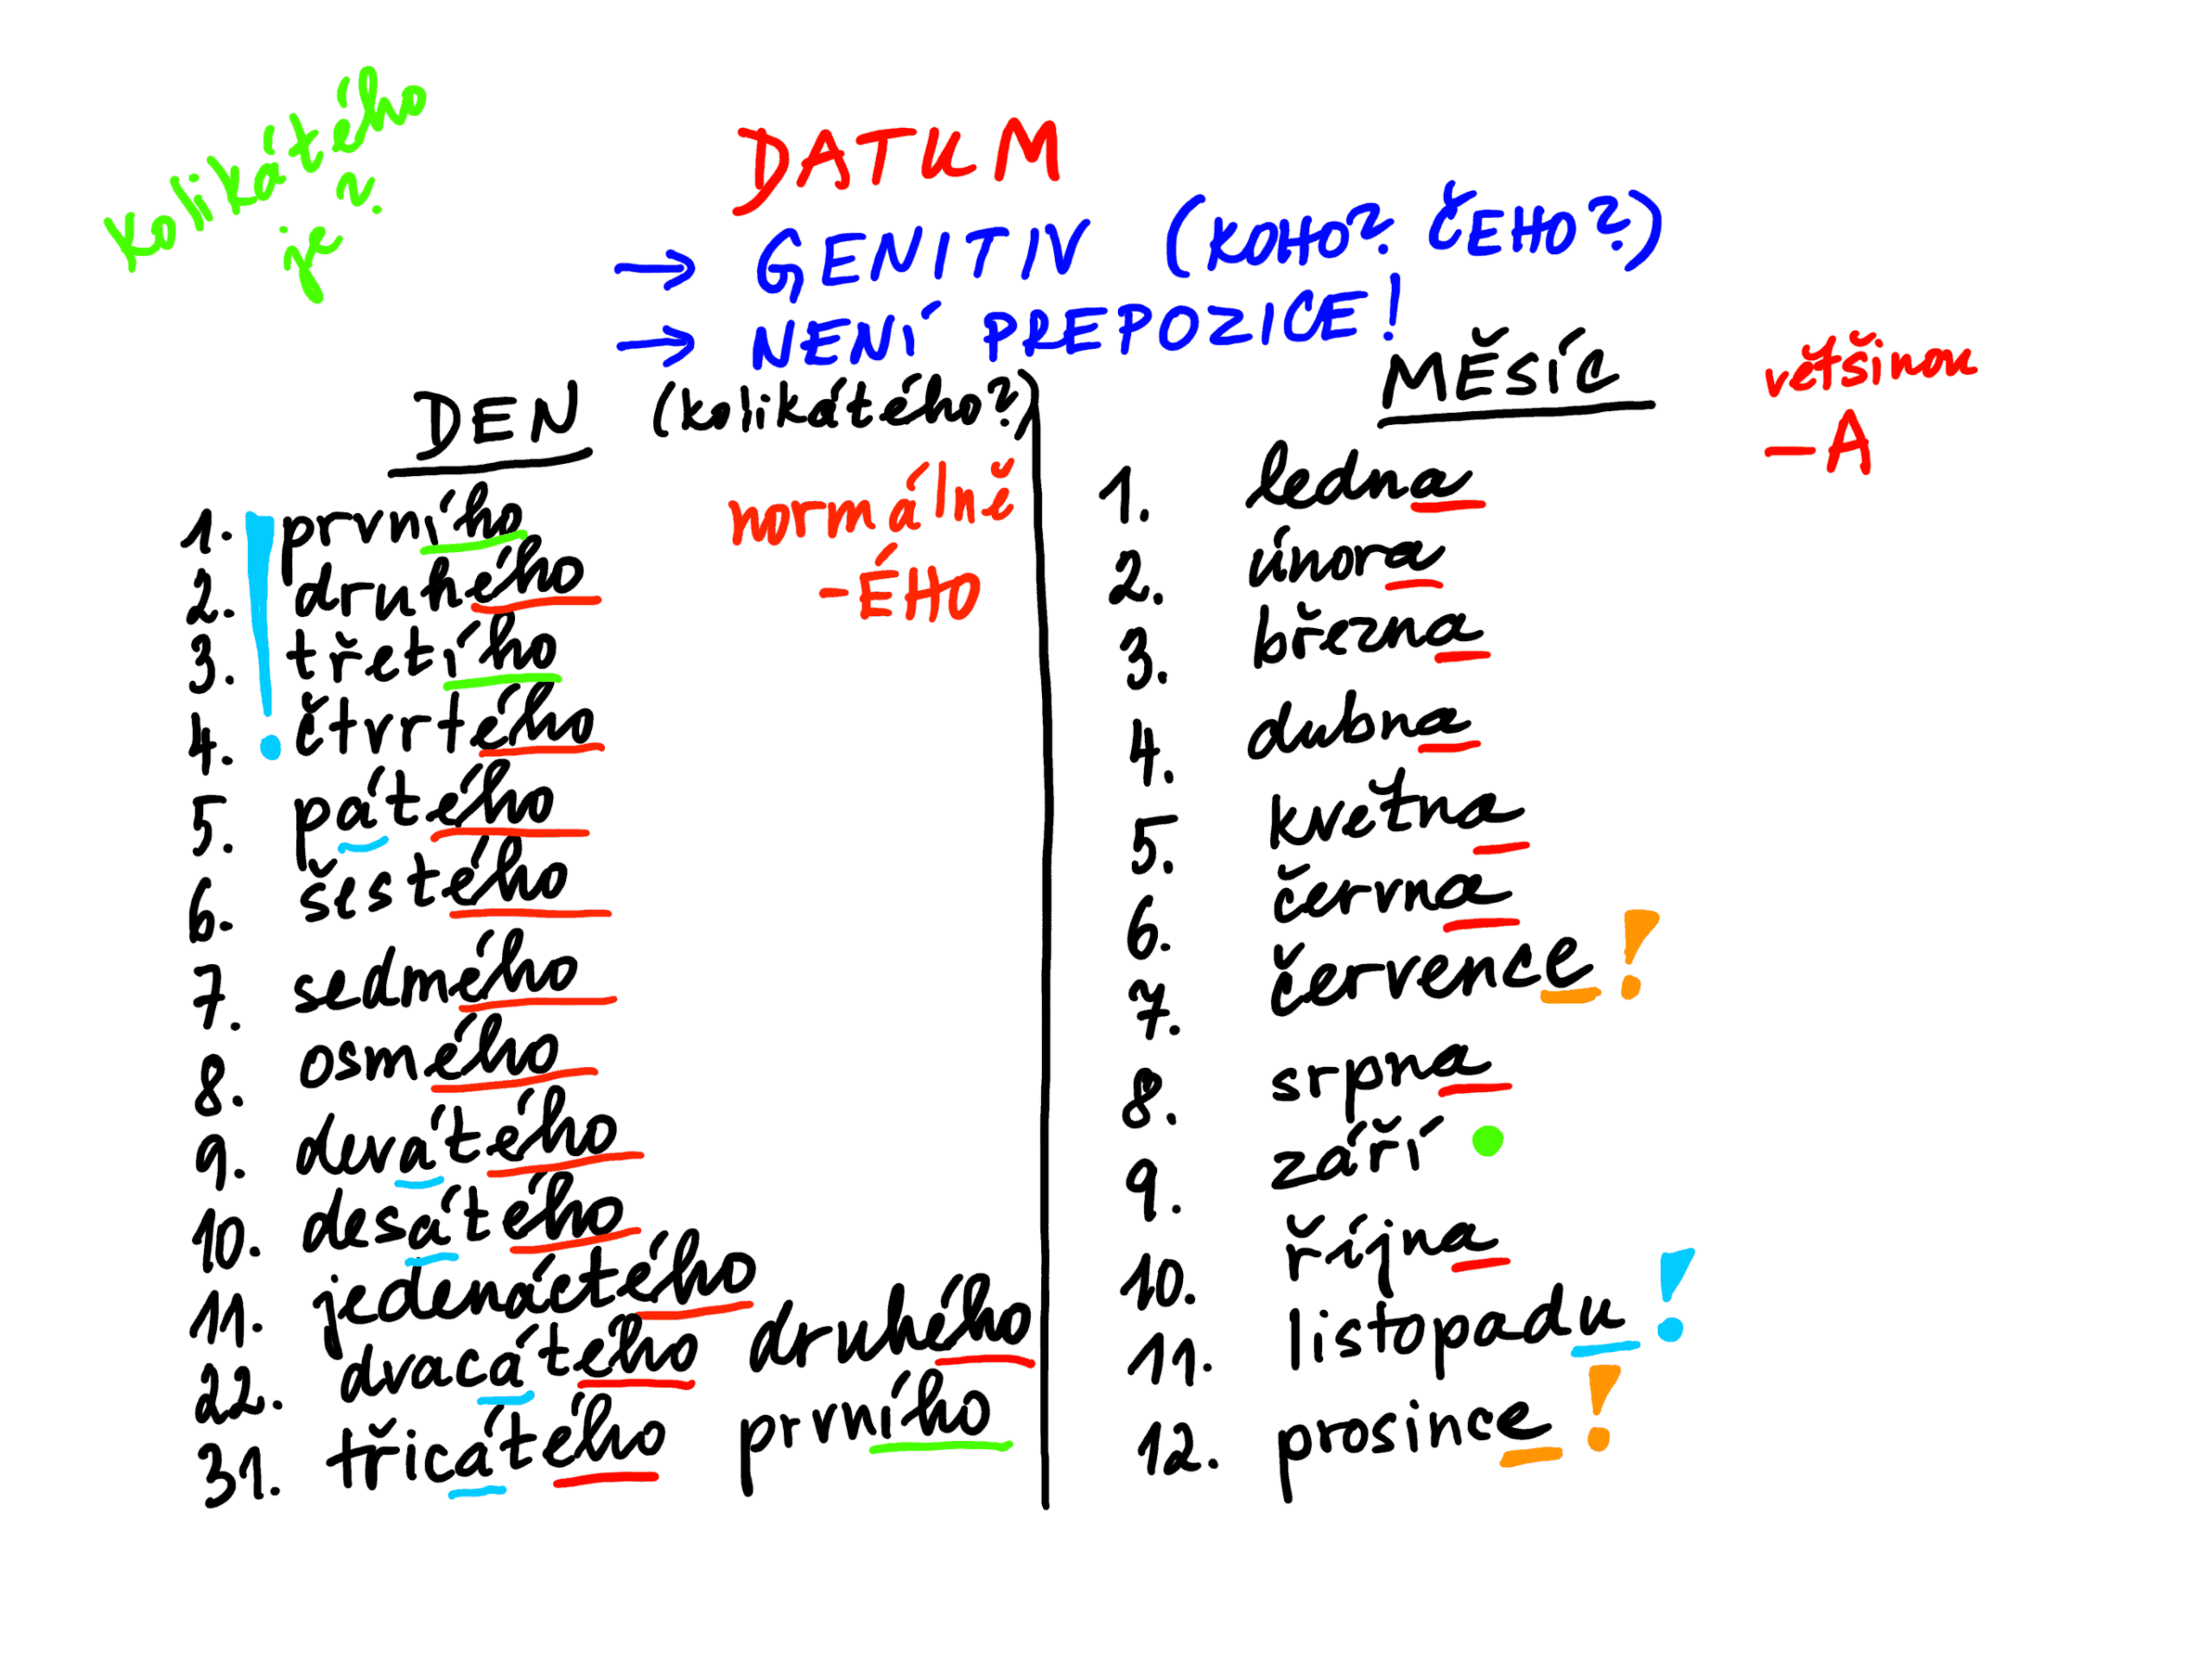 kolikátého
je?
DATUM
→ GENITIV (KOHO? ČEHO?)
→ NENÍ PREPOZICE!
DEN (kolikátého?)
normálně
-ÉHO
1. prvního
2. druhého
3. třetího
4. čtvrtého
5. pátého
6. šestého
7. sedmého
8. osmého
9. devátého
10. desátého
11. jedenáctého
22. dvacátého druhého
31. třicátého prvního
MĚSÍC
většinou
-A
1. ledna
2. února
3. března
4. dubna
5. května
6. června
7. července!
8. srpna
9. září
10. října
11. listopadu!
12. prosince!